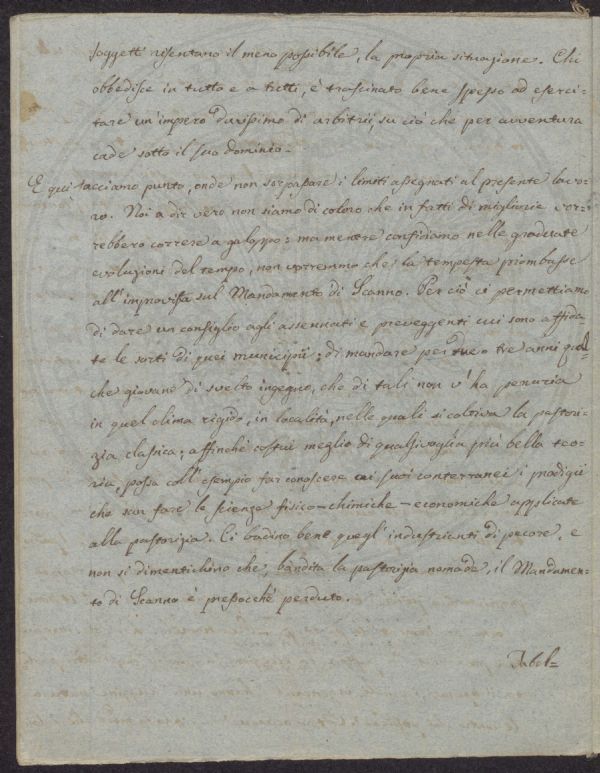 soggetti risentano il meno possibile, la propria situazione. Chi
obbedisce in tutto e a tutti, è trascinato bene spesso ad eserci-
tare un'impero durissimo di arbitrii, su ciò che per avventura
cade sotto il suo dominio.
E qui facciamo punto, onde non sorpassare i limiti assegnati al presente lavo-
ro. Noi a dir vero non siamo di coloro che in fatti di migliorie vor-
rebbero correre a galoppo: ma mentre confidiamo nelle graduate
evoluzioni del tempo, non vorremmo che la tempesta piombasse
all'improvissa sul Mandamento di Scanno. Per ciò ci permettiamo
di dare un consiglio agli assennati e preveggenti cui sono affida-
te le sorti di quei municipii: di mandare per due o tre anni qual-
che giovane di svelto ingegno, che di tali non v'ha penuria
in quel clima rigido, in località, nelle quali si coltiva la pastori-
zia classica; affinchè costui meglio di qualsivoglia più bella teo-
ria, possa coll'esempio far conoscere ai suoi conterranei i prodigii
che san fare le scienze fisico-chimiche-economiche applicate
alla pastorizia. Ci badino bene quegl'industrianti di pecore, e
non si dimentichino che, bandita la pastorizia nomade, il Mandamen-
to di Scanno è pressocchè perduto.
Tabel=